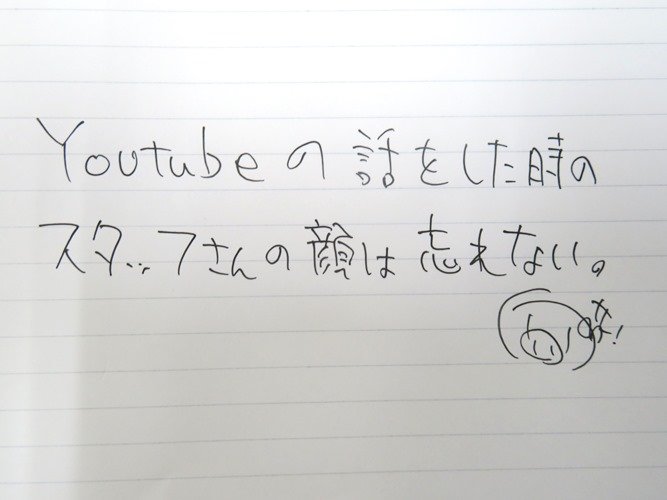 Youtubeの話をした時の
スタッフさんの顔は忘れない。